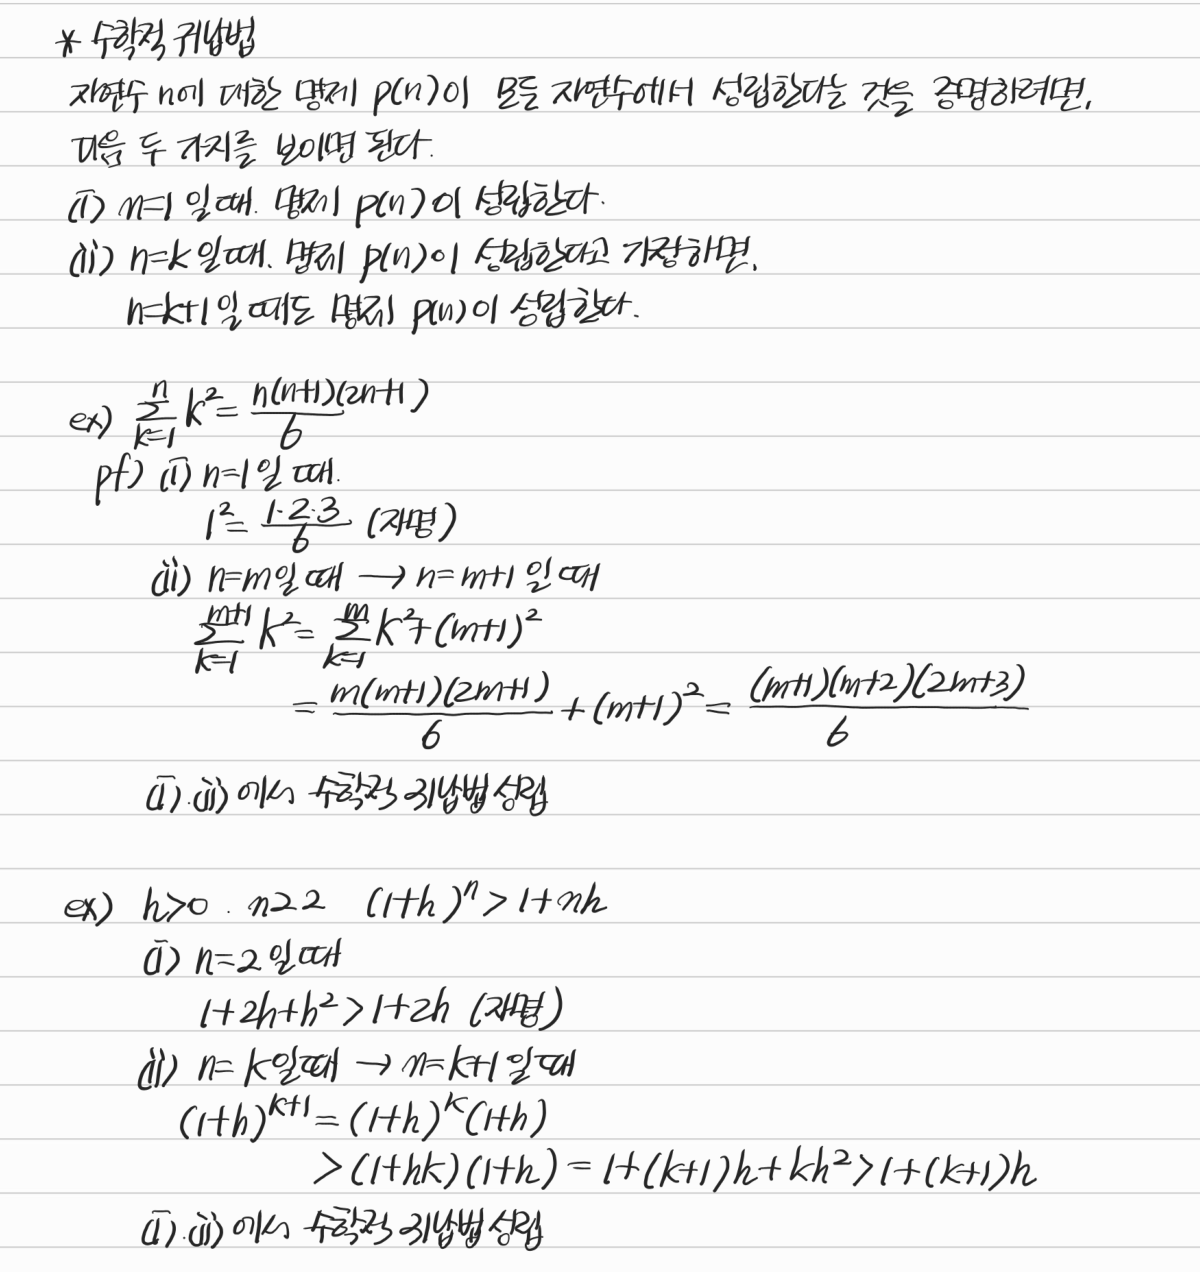 * 수학적 귀납법
자연수 n에 대한 명제 p(n)이 모든 자연수에서 성립한다는 것을 증명하려면,
다음 두 가지를 보이면 된다.
(i) n=1 일 때. 명제 p(n)이 성립한다.
(ii) n=k 일 때. 명제 p(n)이 성립한다고 가정하면,
n=k+1 일 때도 명제 p(n)이 성립한다.
ex) \sum_{k=1}^{n} k² = \frac{n(n+1)(2n+1)}{6}
pf) (i) n=1 일 때.
1² = \frac{1·2·3}{6} (자명)
(ii) n=m일 때 → n=m+1 일 때
\sum_{k=1}^{m+1} k² = \sum_{k=1}^{m} k² + (m+1)²
= \frac{m(m+1)(2m+1)}{6} + (m+1)² = \frac{(m+1)(m+2)(2m+3)}{6}
(i).(ii) 에서 수학적 귀납법 성립
ex) h>0 . n≥2 (1+h)ⁿ > 1+nh
(i) n=2 일 때
1+2h+h² > 1+2h (자명)
(ii) n=k일 때 → n=k+1 일 때
(1+h)^{k+1} = (1+h)^{k}(1+h)
> (1+hk)(1+h) = 1+(k+1)h+kh² > 1+(k+1)h
(i).(ii) 에서 수학적 귀납법 성립